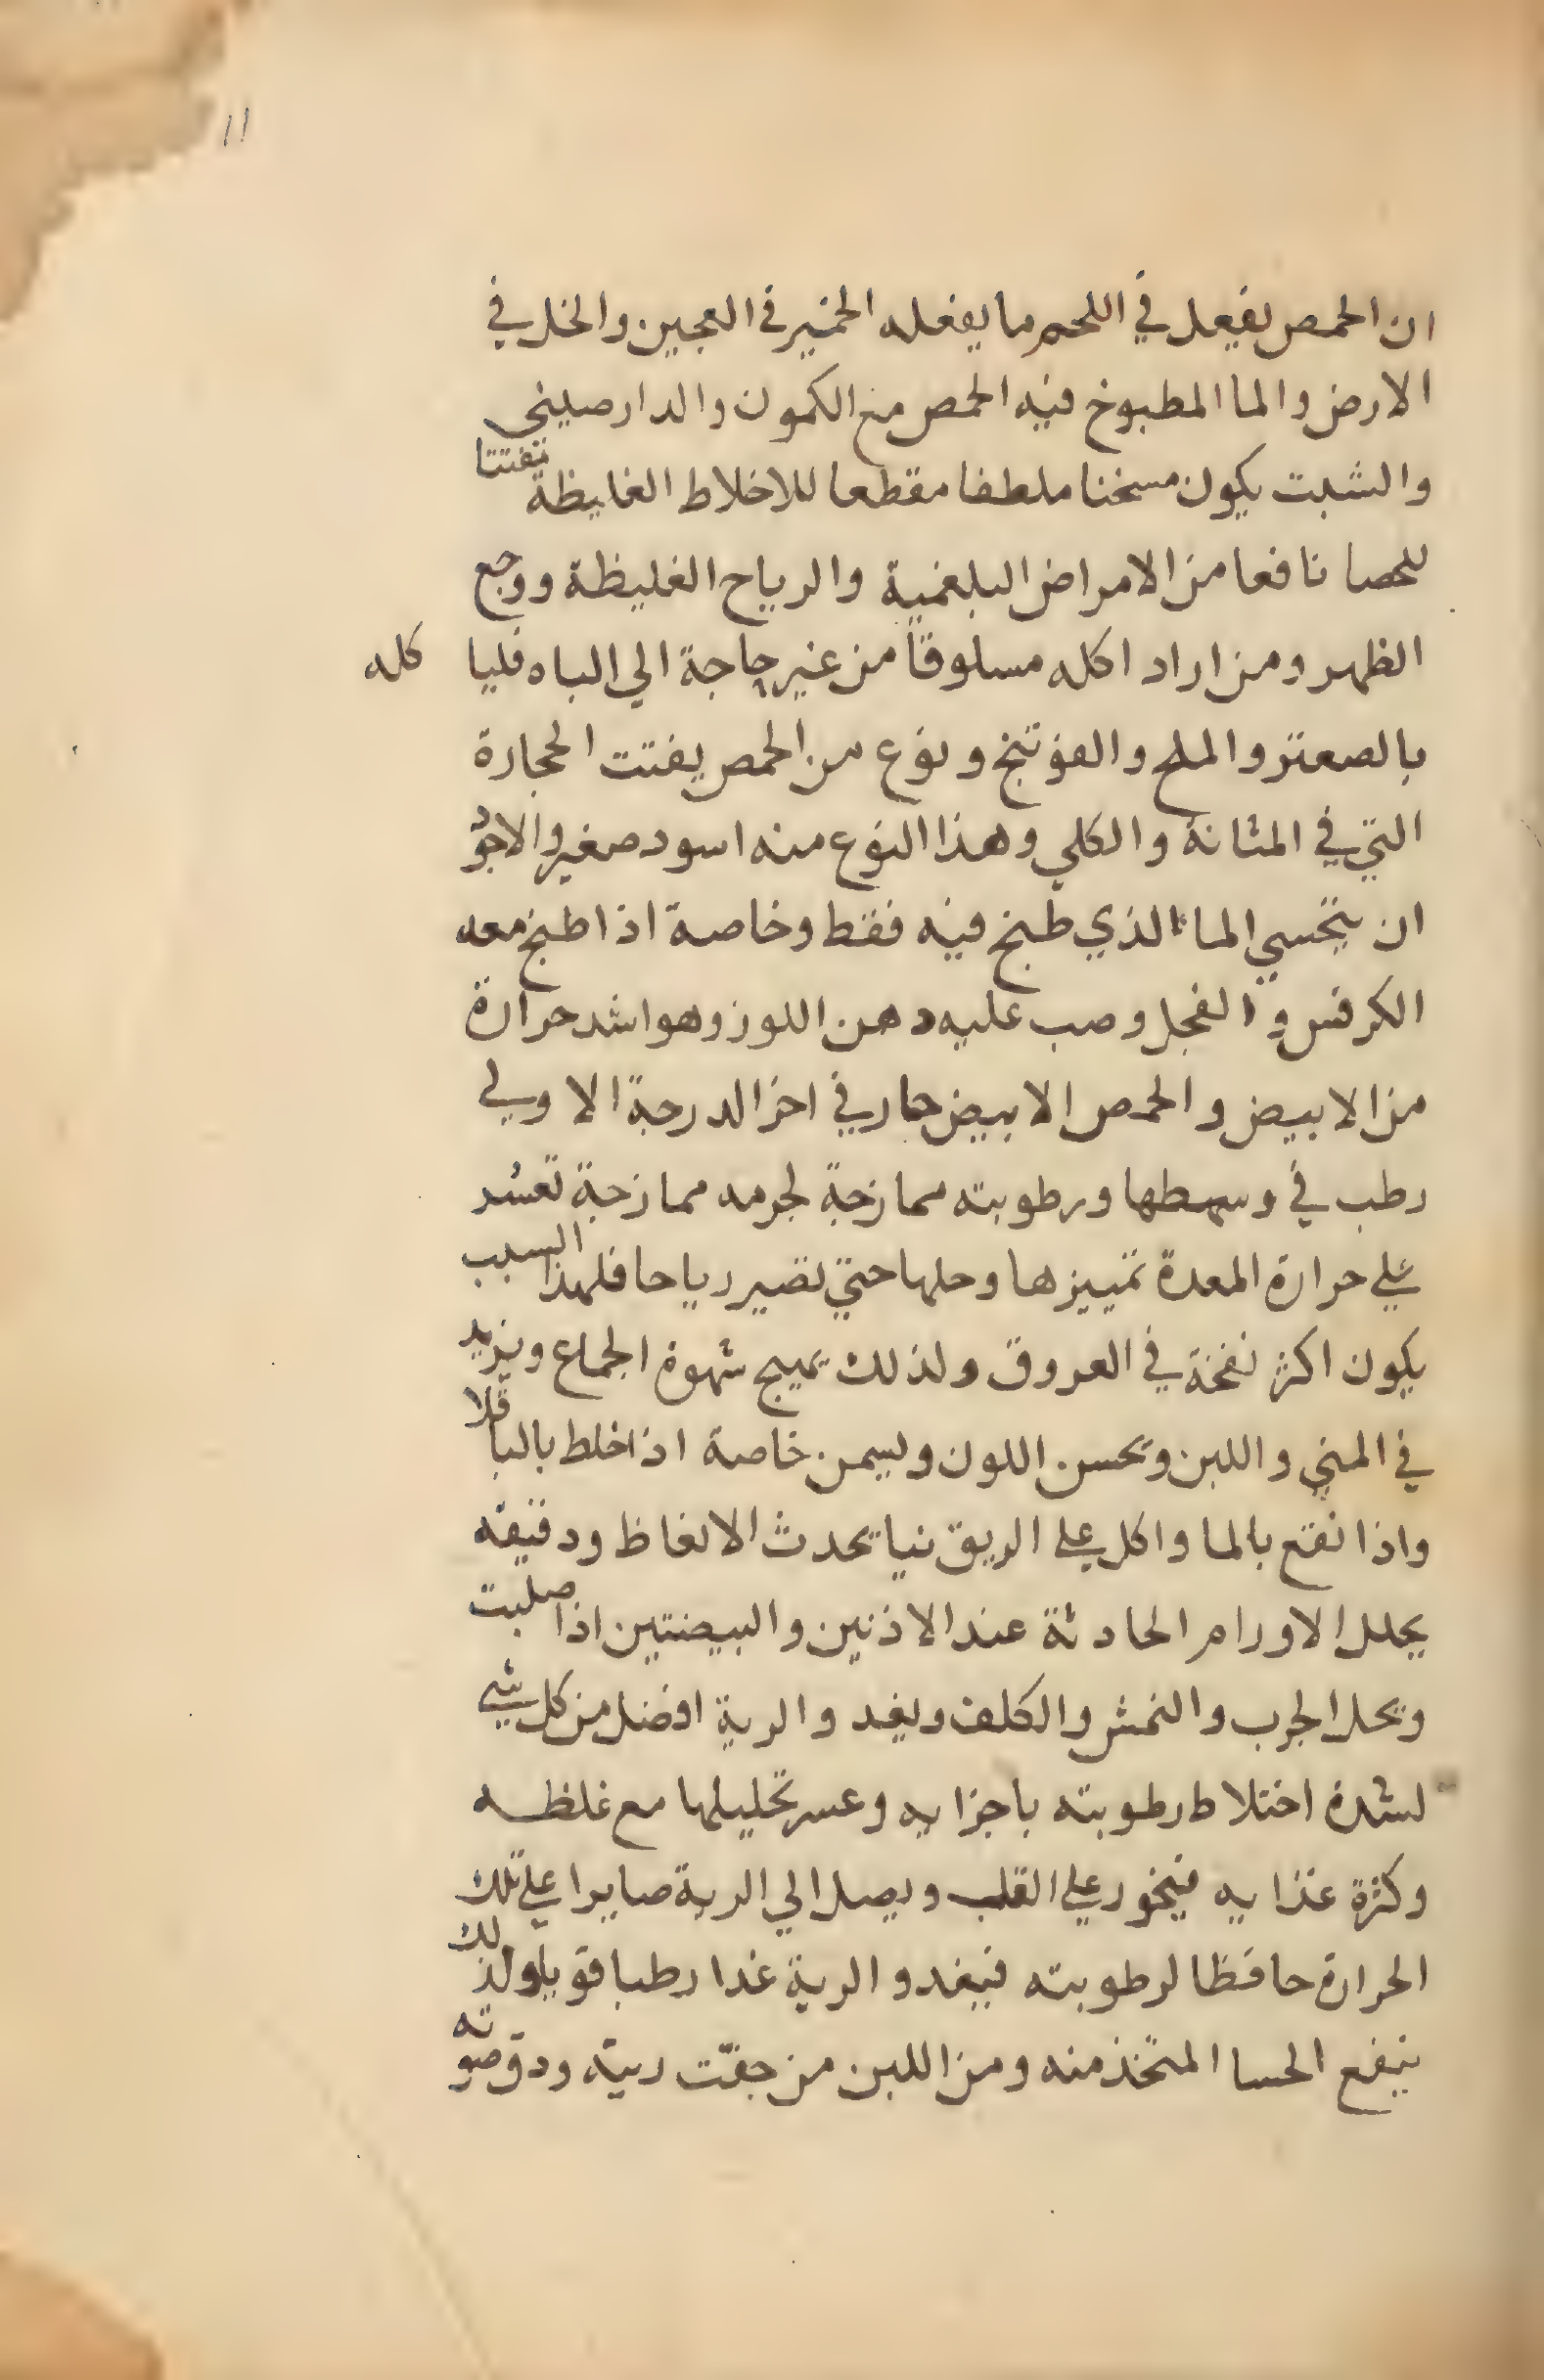 ١١
ان الحمص يفعل في اللحم ما يفعله الخمير في العجين والخل في
الارض والما المطبوخ فيه الحمص مع الكمون والدارصيني
والشبت يكون مسخنا ملطفا مقطعا للاخلاط الغليظة تفتتا
للحصا نافعا من الامراض البلغمية والرياح الغليظة ووجع
الظهر ومن اراد اكله مسلوقاً من غير حاجة الي الباه فليا كله
بالصعتر والملح والفوتنج ونوع من الحمص يفتت الحجارة
التي في المثانة والكلي وهذا النوع منه اسود صغير والاجود
ان يتحسي الماء الذي طبخ فيه فقط وخاصة اذا طبخ معه
الكرفس والفجل وصب عليه دهن اللوز وهو اشد حرارة
من الابيض والحمص الابيض حار في اخر الدرجة الاولي
رطب في وسطها ورطوبته ممازجة لجرمه ممازجة تعسُر
علي حرارة المعدة تمييزها وحلها حتي تصير رياحا فلهذا السبب
يكون اكثر نفخة في العروق ولذلك يهيج شهوة الجماع ويزيد
في المني واللبن ويحسن اللون ويسمن خاصة اذا خلط بالباقلا
واذا نقع بالما واكل علي الريق نيا يحدث الانعاظ ودقيقه
يحلل الاورام الحادثة عند الاذنين والبيضتين اذا صلبت
ويحل الجرب والنمش والكلف ويغد والرية افضل من كل شي
لشدة اختلاط رطوبته باجزايه وعسر تحليلها مع غلظه
وكثرة غذايه فيخور علي القلب ويصل الي الرية صابرا علي تلك
الحرارة حافظا لرطوبته فيغدو الرية غدا رطبا قويا ولذلك
ينفع الحسا المتخذ منه ومن اللبن من جفّت ريته ودق صوته